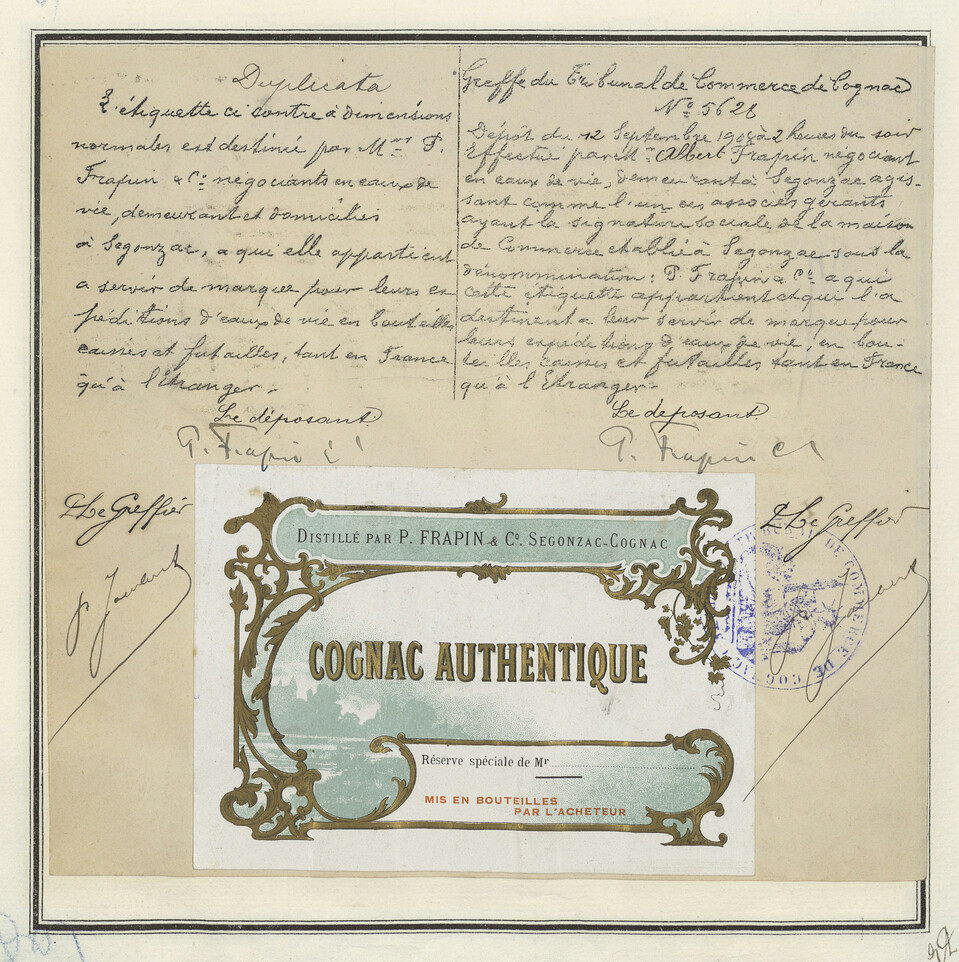 Duplicata
L'étiquette ci contre à dimensions
normales est destinée par Mrs P.
Frapin & Cie négociants en eaux de
vie, demeurant et domiciliés
à Segonzac, a qui elle appartient
a servir de marque pour leurs ex
péditions d'eaux de vie en bouteilles
caisses et futailles, tant en France
qu'à l'Etranger.
Le déposant.
P. Frapin Cie
Le Greffier
Greffe du Tribunal de Commerce de Cognac
No 5628
Dépôt du 12 Septembre 1908 à 2 heures du soir
Effectué par Mr Albert Frapin négociant
en eaux de vie, demeurant à Segonzac agis-
sant comme l'un des associés gérants
ayant la signature sociale de la maison
de Commerce etablie à Segonzac sous la
dénommination: P. Frapin & Cie a qui
cette étiquette appartient et qui l'a
destinent a leur servir de marque pour
leurs expeditions d'eaux de vie, en bou-
teilles caisses et futailles tant en France
qu'à l'Etranger
Le deposant.
P. Frapin Cie
Le Greffier
DISTILLÉ PAR P. FRAPIN & Co. SEGONZAC-COGNAC
COGNAC AUTHENTIQUE
Réserve spéciale de Mr
MIS EN BOUTEILLES
PAR L'ACHETEUR
TRIBUNAL DE COMMERCE DE COGNAC